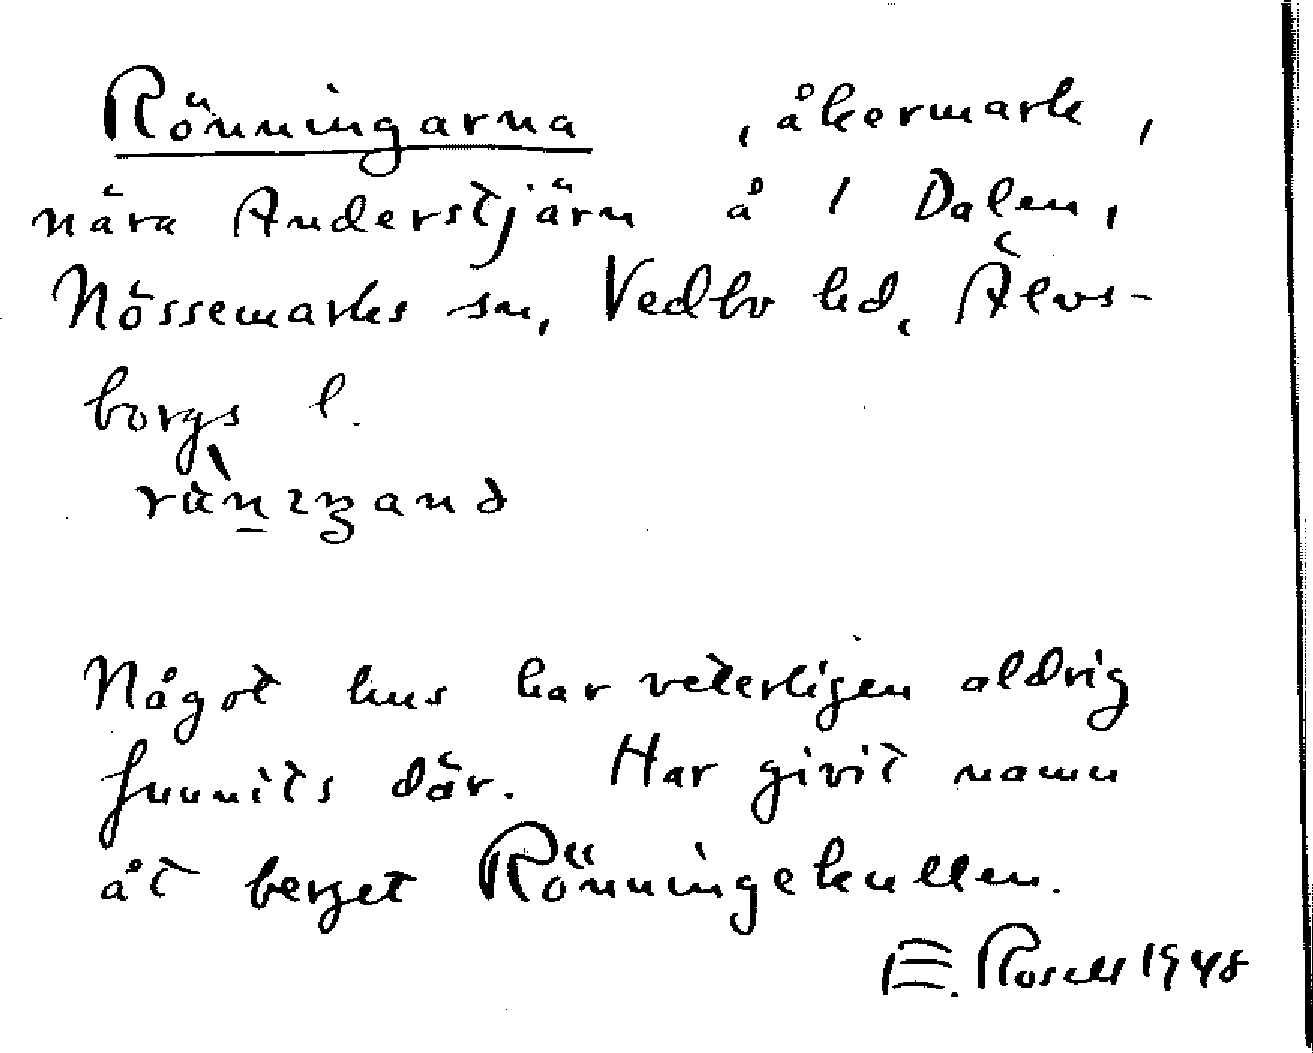 Rönningarna , åkermark ,
nära Anderstjärn å 1 Dalen,
Nössemarks sn, Vedbo hd, Älvs-
borgs l.
Något hus har veterligen aldrig
funnits där. Har givit namn
åt berget Rönningekullen.
E. Rosell 1948